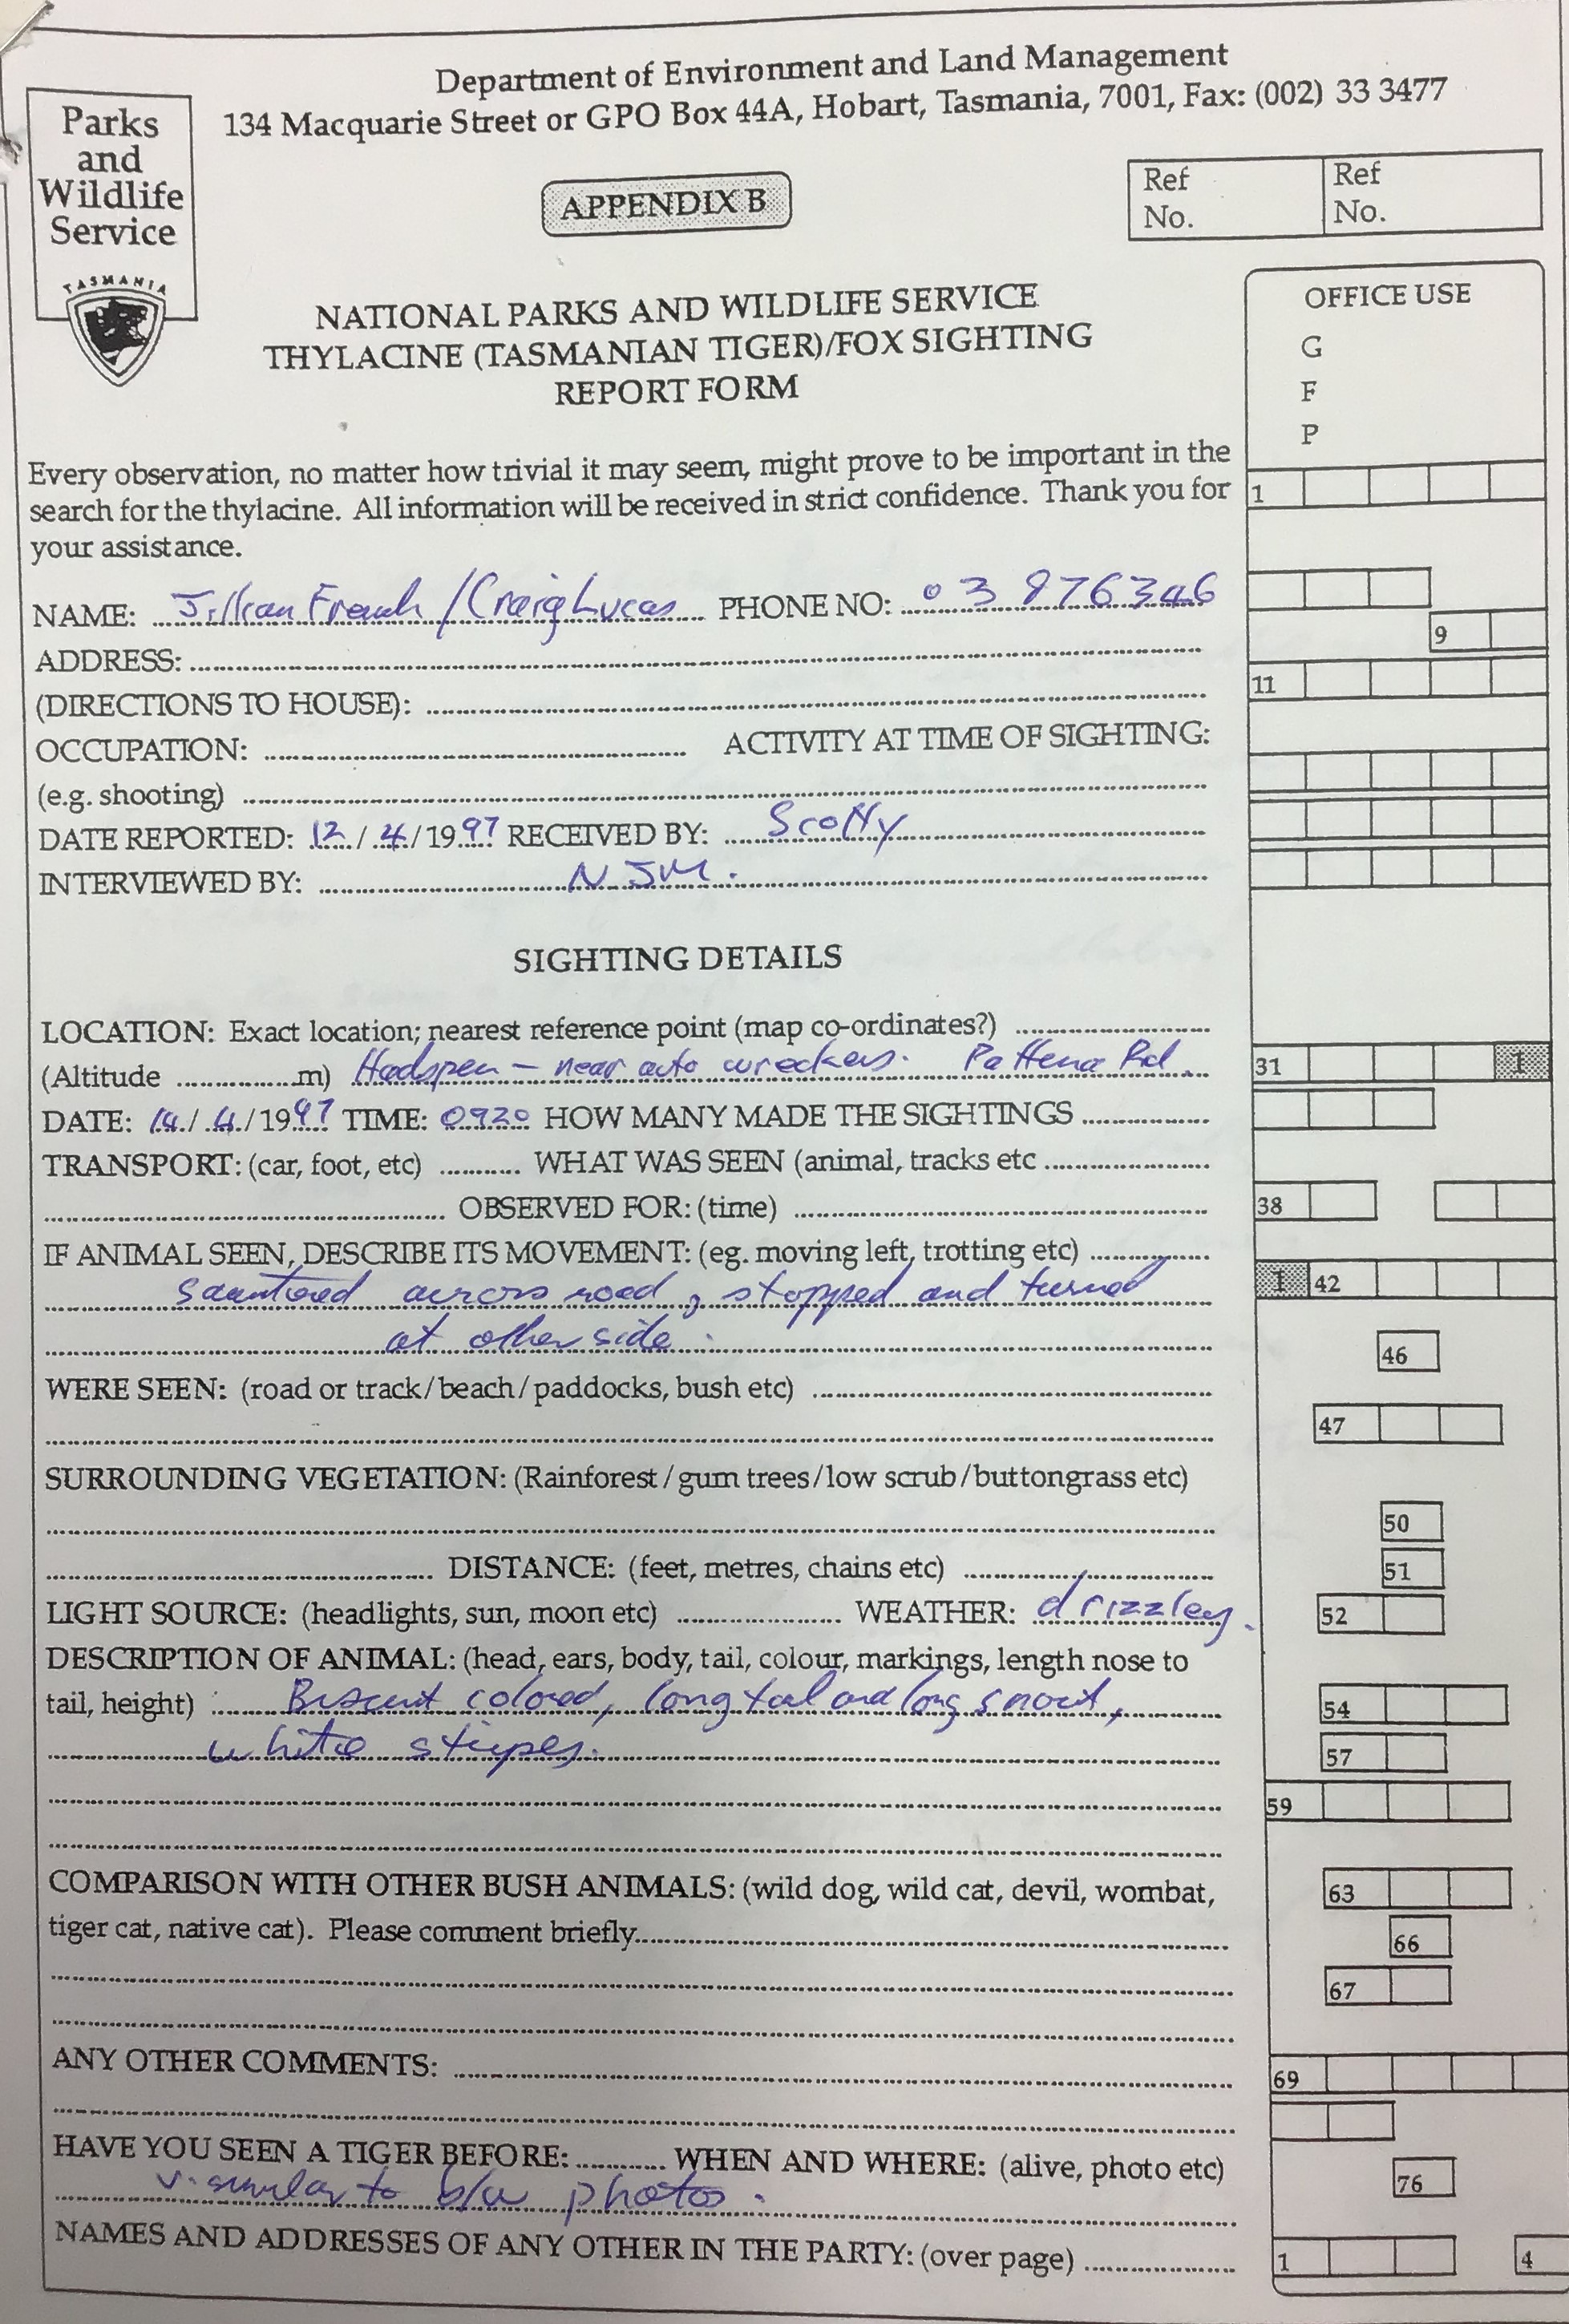 Department of Environment and Land Management
134 Macquarie Street or GPO Box 44A, Hobart, Tasmania, 7001, Fax: (002) 33 3477
Parks
and
Wildlife
Service
TASMANIA
APPENDIX B
Ref
No.
Ref
No.
NATIONAL PARKS AND WILDLIFE SERVICE
THYLACINE (TASMANIAN TIGER)/FOX SIGHTING
REPORT FORM
OFFICE USE
G
F
P
Every observation, no matter how trivial it may seem, might prove to be important in the
search for the thylacine. All information will be received in strict confidence. Thank you for
your assistance.
1
NAME: Jillian French / Craig Lucas PHONE NO: 03 876346
9
ADDRESS:
(DIRECTIONS TO HOUSE):
11
OCCUPATION: ACTIVITY AT TIME OF SIGHTING:
(e.g. shooting)
DATE REPORTED: 12/4/1997 RECEIVED BY: Scotty
INTERVIEWED BY: NJM.
SIGHTING DETAILS
LOCATION: Exact location; nearest reference point (map co-ordinates?)
(Altitude m) Hadspen - near auto wreckers. Pattena Rd.
31 1
DATE: 14/4/1997 TIME: 0920 HOW MANY MADE THE SIGHTINGS
TRANSPORT: (car, foot, etc) WHAT WAS SEEN (animal, tracks etc
OBSERVED FOR: (time)
38
IF ANIMAL SEEN, DESCRIBE ITS MOVEMENT: (eg. moving left, trotting etc)
sauntered across road, stopped and turned
1 42
at other side.
46
WERE SEEN: (road or track/beach/paddocks, bush etc)
47
SURROUNDING VEGETATION: (Rainforest/gum trees/low scrub/buttongrass etc)
50
DISTANCE: (feet, metres, chains etc)
51
LIGHT SOURCE: (headlights, sun, moon etc) WEATHER: drizzley.
52
DESCRIPTION OF ANIMAL: (head, ears, body, tail, colour, markings, length nose to
tail, height) Biscuit colored, long tail and long snout,
54
white stripes.
57
59
COMPARISON WITH OTHER BUSH ANIMALS: (wild dog, wild cat, devil, wombat,
63
tiger cat, native cat). Please comment briefly
66
67
ANY OTHER COMMENTS:
69
HAVE YOU SEEN A TIGER BEFORE: WHEN AND WHERE: (alive, photo etc)
v. similar to b/w photos.
76
NAMES AND ADDRESSES OF ANY OTHER IN THE PARTY: (over page)
1 4